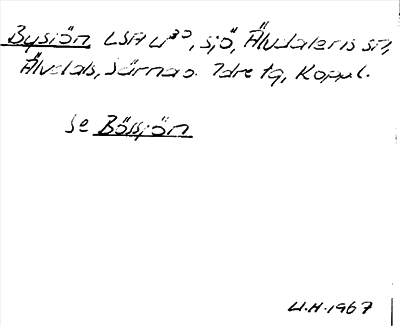 Bysjön LSA U³⁰, sjö, Älvdalens sn,
Älvdals, Särna o. Idre tg, Koppl.
Se Bössjön
U.H. 1967